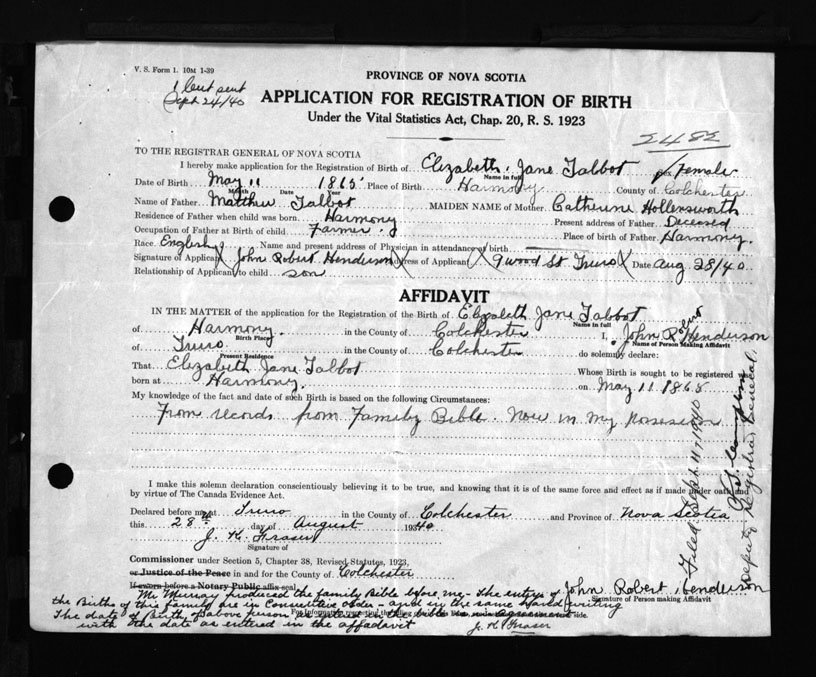 V. S. Form 1. 10M 1-39
1 Cert sent
Sept 24/40
PROVINCE OF NOVA SCOTIA
APPLICATION FOR REGISTRATION OF BIRTH
Under the Vital Statistics Act, Chap. 20, R. S. 1923
TO THE REGISTRAR GENERAL OF NOVA SCOTIA
I hereby make application for the Registration of Birth of Elizabeth Jane Talbot Sex Female
Name in full
Date of Birth May 11 1865 Place of Birth Harmony County of Colchester
Month Date Year
Name of Father Matthew Talbot MAIDEN NAME of Mother Catherine Hollensworth
Residence of Father when child was born Harmony Present address of Father Deceased
Occupation of Father at Birth of child Farmer Place of birth of Father Harmony.
Race English Name and present address of Physician in attendance at birth
Signature of Applicant X John Robert Henderson X Address of Applicant X 9 Wood St Truro X Date Aug 28/40
Relationship of Applicant to child son
AFFIDAVIT
IN THE MATTER of the application for the Registration of Birth of Elizabeth Jane Talbot
Name in full
of Harmony. in the County of Colchester I, John R. Henderson
Birth Place Name of Person Making Affidavit
of Truro in the County of Colchester do solemnly declare:
Present Residence
That Elizabeth Jane Talbot Whose Birth is sought to be registered
born at Harmony. on May 11 1865
My knowledge of the fact and date of such Birth is based on the following Circumstances:
From records from Family Bible. Now in my possession
I make this solemn declaration conscientiously believing it to be true, and knowing that it is of the same force and effect as if made under oath and
by virtue of The Canada Evidence Act.
Declared before me at Truro in the County of Colchester and Province of Nova Scotia
this 28th day of August 1940
J. K. Fraser
Signature of
Commissioner under Section 5, Chapter 38, Revised Statutes, 1923,
or Justice of the Peace in and for the County of Colchester
If sworn before a Notary Public affix seal
John Robert Henderson
Signature of Person making Affidavit
Mr Murray produced the family Bible before me - The entries of
the Births of this family are in Consecutive order - and in the same handwriting
The date of Birth of above person as entered in the bible is in agreement
with the date as entered in the affadavit
J. K. Fraser
Filed Sept. 11, 1940
Deputy Registrar General.